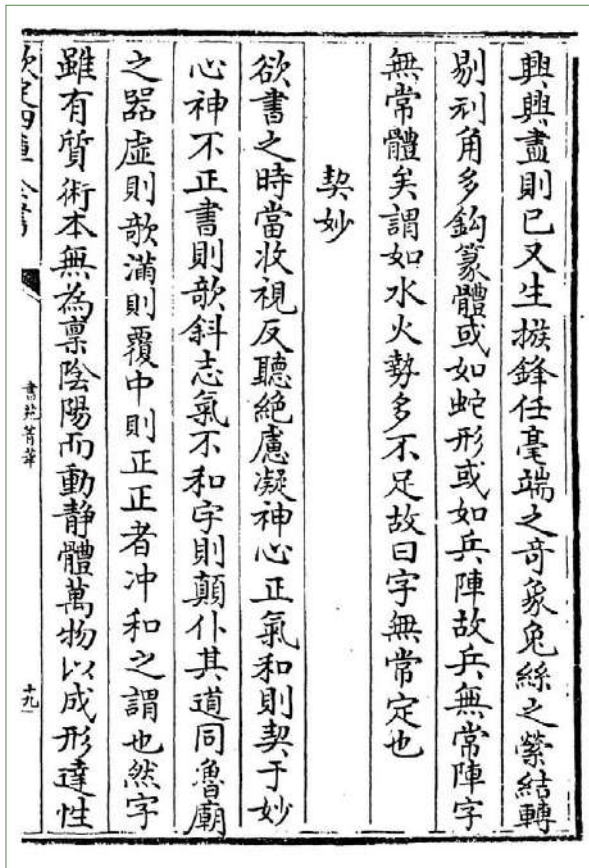 興興盡則已又生撥鋒任毫端之奇象兔絲之縈結轉
剔刓角多鈎篆體或如蛇形或如兵陣故兵無常陣字
無常體矣謂如水火勢多不足故曰字無常定也
契妙
欲書之時當收視反聽絶慮凝神心正氣和則契于妙
心神不正書則欹斜志氣不和字則顛仆其道同魯廟
之器虛則欹滿則覆中則正正者冲和之謂也然字
雖有質術本無為禀陰陽而動静體萬物以成形達性
欽定四庫全書
書苑菁華
十九